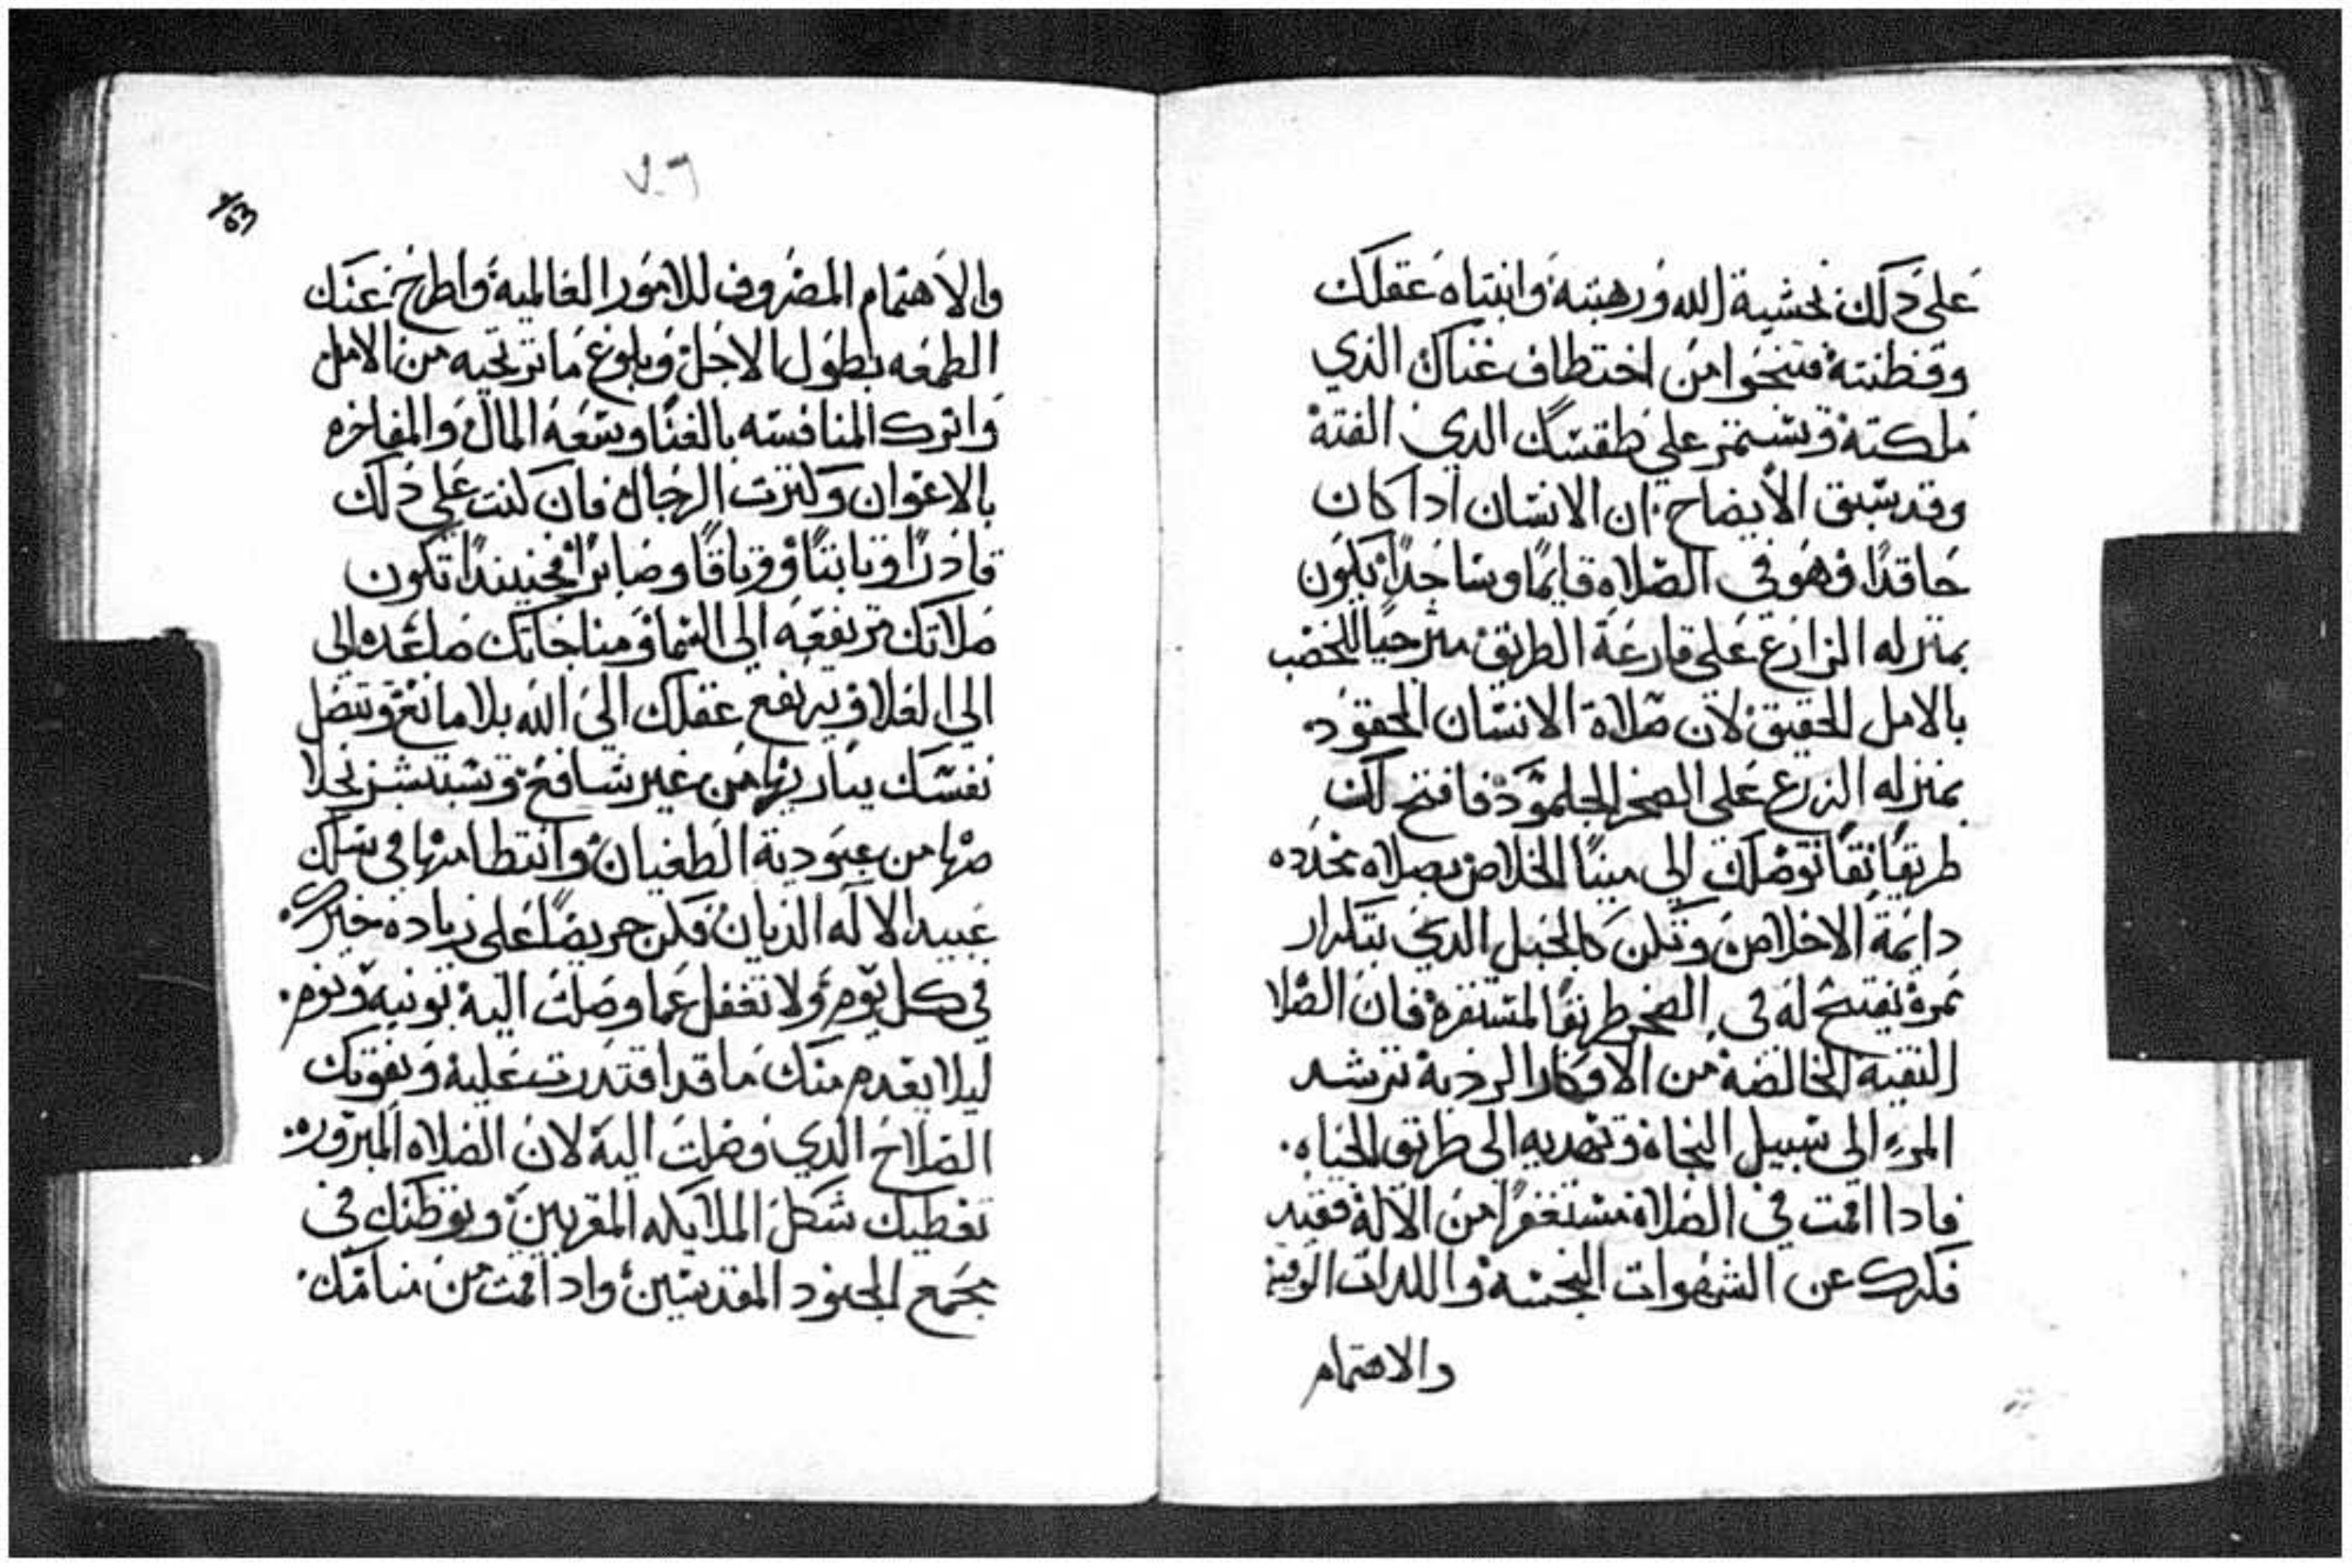 على دلك بخشية الله ورهبته وانتباه عقلك
وفطنته فتنجوا من اختطاف غناك الذي
ملكته وتستمر على طقسك الدي الفته
وقد سبق الأيضاح ان الانسان ادا كان
حاقدًا وهو في الصلاه قايمًا وساجدًا يكون
بمنزله الزارع على قارعة الطريق مترجيًا للخصب
بالامل الحقيق لان صلاة الانسان الحقود
بمنزله الزرع على الصخر الجلمود فافتح لك
طريقًا نقيًا توصلك الي مينا الخلاص بصلاه
دايمة الاخلاص وتكن كالحبل الدي بتكرار
نمره يفتح له في الصخر طريقًا لمستقره فان الصلا
النقية الخالصه من الافكار الرديه ترشد
المرء الي سبيل النجاة وتهديه الى طريق الحياه
فادا اقمت في الصلاه مستغفرًا من الاله فقيد
فكرك عن الشهوات النجسه واللدات
والاهتمام
والاهتمام المصروف للامور العالمية واطرح عنك
الطمعه بطول الاجل وبلوغ ما ترتجيه من الامل
واترك المنافسه بالغنا وسعة المال والمفاخره
بالاعوان وكترت الرجال فان كنت على دلك
قادرًا وتابتًا وصابرًا فحينيدًا تكون
صلاتك مرتفعه الى السما ومناجاتك صاعده الى
الي العلا ويرتفع عقلك الى الله بلا مانع وتتصل
نفسك بباريها من غير شافع وتستبشر بخلا
صها من عبودية الطغيان وانتظامها في سلك
عبيد الاله الديان فكن حريصًا على زياده خيرك
في كل يوم ولا تغفل عما وصلت اليه بونيه ونوم
ليلا يعدم منك ما قد اقتدرت عليه ويفوتك
الصلاح الدي وصلت اليه لان الصلاه المبروره
تعطيك شكل الملايكه المقربين وتوطنك في
مجمع الجنود المقدسين وادا قمت من منامك